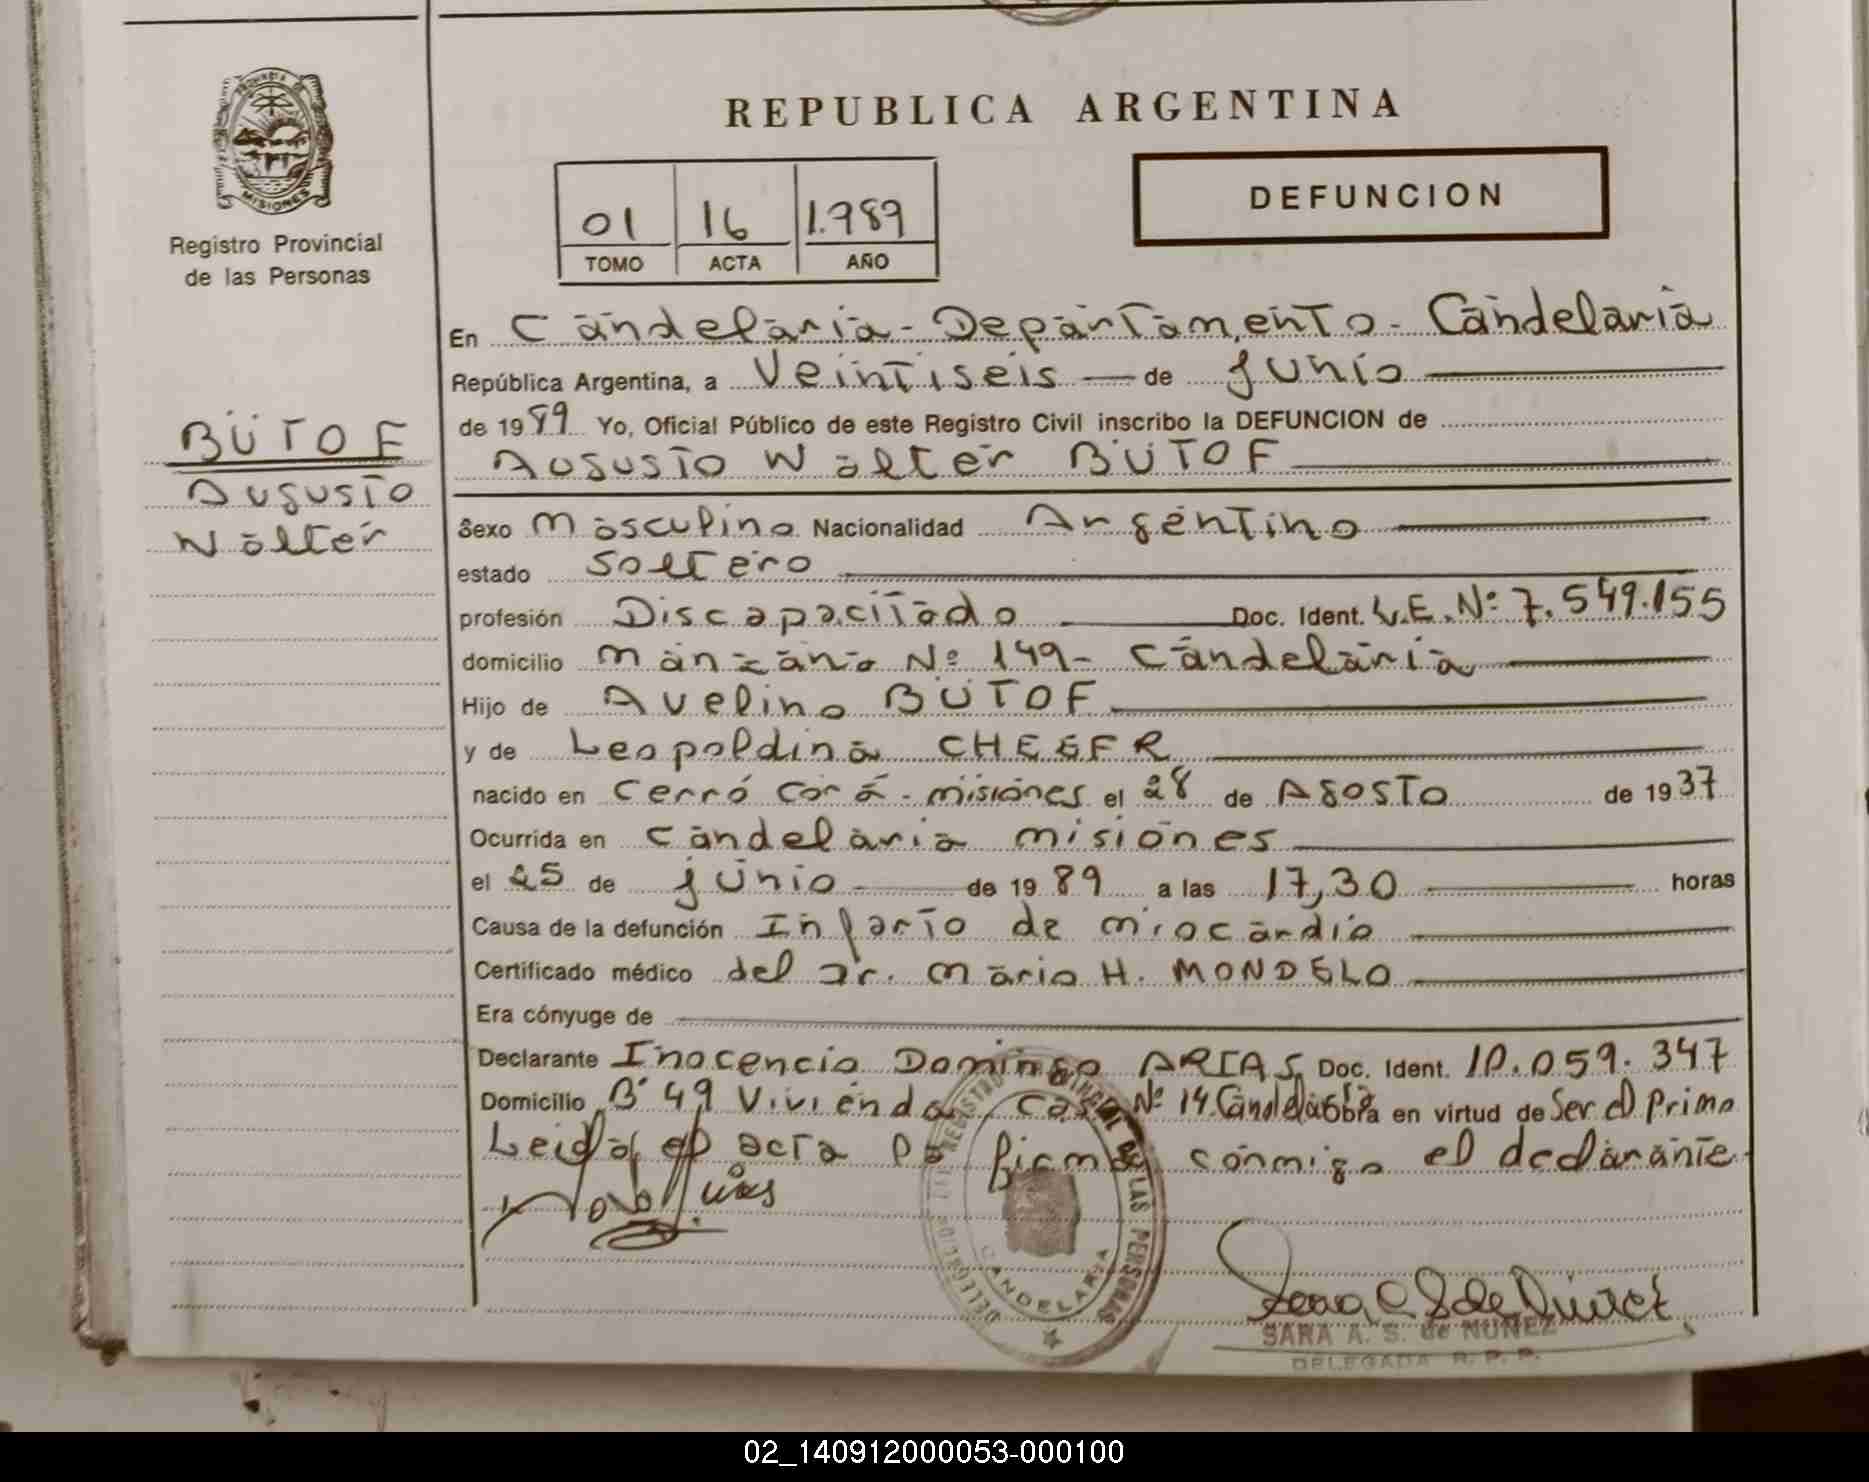 PROVINCIA DE
MISIONES
Registro Provincial
de las Personas
REPUBLICA ARGENTINA
01 16 1.989
TOMO ACTA AÑO
DEFUNCION
En Candelaria - Departamento - Candelaria
República Argentina, a Veintiseis — de Junio
de 1989 Yo, Oficial Público de este Registro Civil inscribo la DEFUNCION de
Augusto Walter BÜTOF
BÜTOF
Augusto
Walter
Sexo Masculino Nacionalidad Argentino
estado Soltero
profesión Discapacitado Doc. Ident. L.E. Nº 7.549.155
domicilio Manzana Nº 149 - Candelaria
Hijo de Avelino BÜTOF
y de Leopoldina CHEEFR
nacido en Cerró Corá - misiones el 28 de Agosto de 1937
Ocurrida en Candelaria misiones
el 25 de junio de 1989 a las 17,30 horas
Causa de la defunción Infarto de miocardio
Certificado médico del Dr. Mario H. MONDELO
Era cónyuge de
Declarante Inocencio Domingo ARIAS Doc. Ident. 10.059.347
Domicilio Bº 49 Vivienda, Casa Nº 14 Candelaria Obra en virtud de Ser el Primo
Leida el acta la firma conmigo el declarante
CANDELARIA
SARA A. S. de NUÑEZ
DELEGADA R. P. P.
02_140912000053-000100